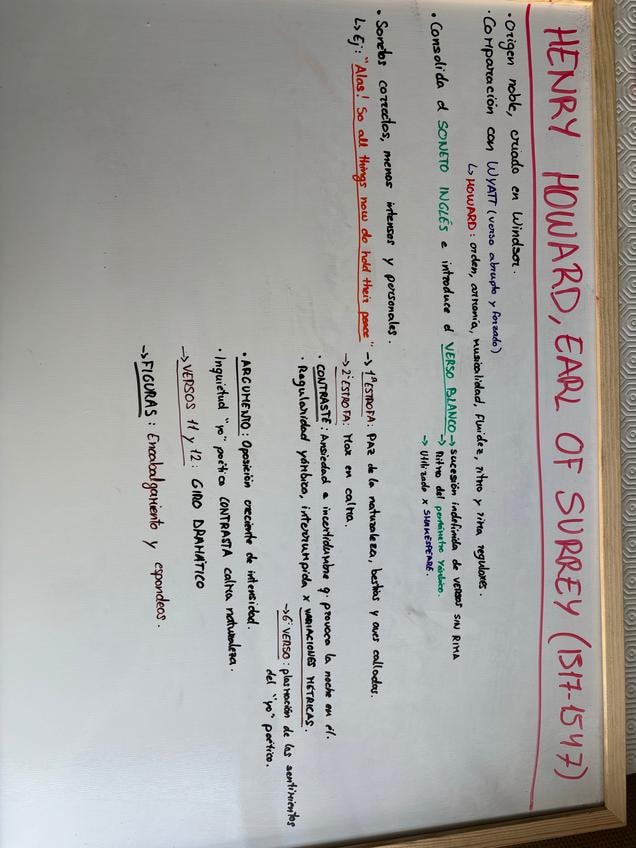 HENRY HOWARD, EARL OF SURREY (1517-1547)
· Origen noble, criado en Windsor.
· Comparación con WYATT (verso abrupto y forzado)
↳ HOWARD: orden, armonía, musicalidad, fluidez, ritmo y rima regulares.
· Consolida el SONETO INGLÉS e introduce el VERSO BLANCO → sucesión indefinida de VERSOS SIN RIMA
→ Ritmo del pentámetro yámbico.
→ Utilizado x SHAKESPEARE.
· Sonetos correctos, menos intensos y personales.
↳ Ej: "Alas! So all things now do hold their peace" → 1ª ESTROFA: PAZ de la naturaleza, bestias y aves calladas.
→ 2ª ESTROFA: Mar en calma.
· CONTRASTE: Ansiedad e incertidumbre q. provoca la noche en él.
· Regularidad yámbica, interrumpida x VARIACIONES MÉTRICAS.
→ 6º VERSO: plasmación de los sentimientos
del "yo" poético.
· ARGUMENTO: Oposición creciente de intensidad.
· Inquietud "yo" poético CONTRASTA calma naturaleza.
→ VERSOS 11 y 12: GIRO DRAMÁTICO
→ FIGURAS: Encabalgamiento y espondeos.